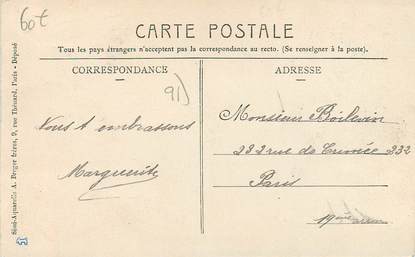 60t
CARTE POSTALE
Tous les pays étrangers n'acceptent pas la correspondance au recto. (Se renseigner à la poste).
CORRESPONDANCE
ADRESSE
91)
Vous t embrassons
Marguerite
Monsieur Boilevin
232 rue de Crimée 232
Paris
19ème
Simi-Aquarelle A. Breger frères, 9, rue Thénard, Paris - Déposé